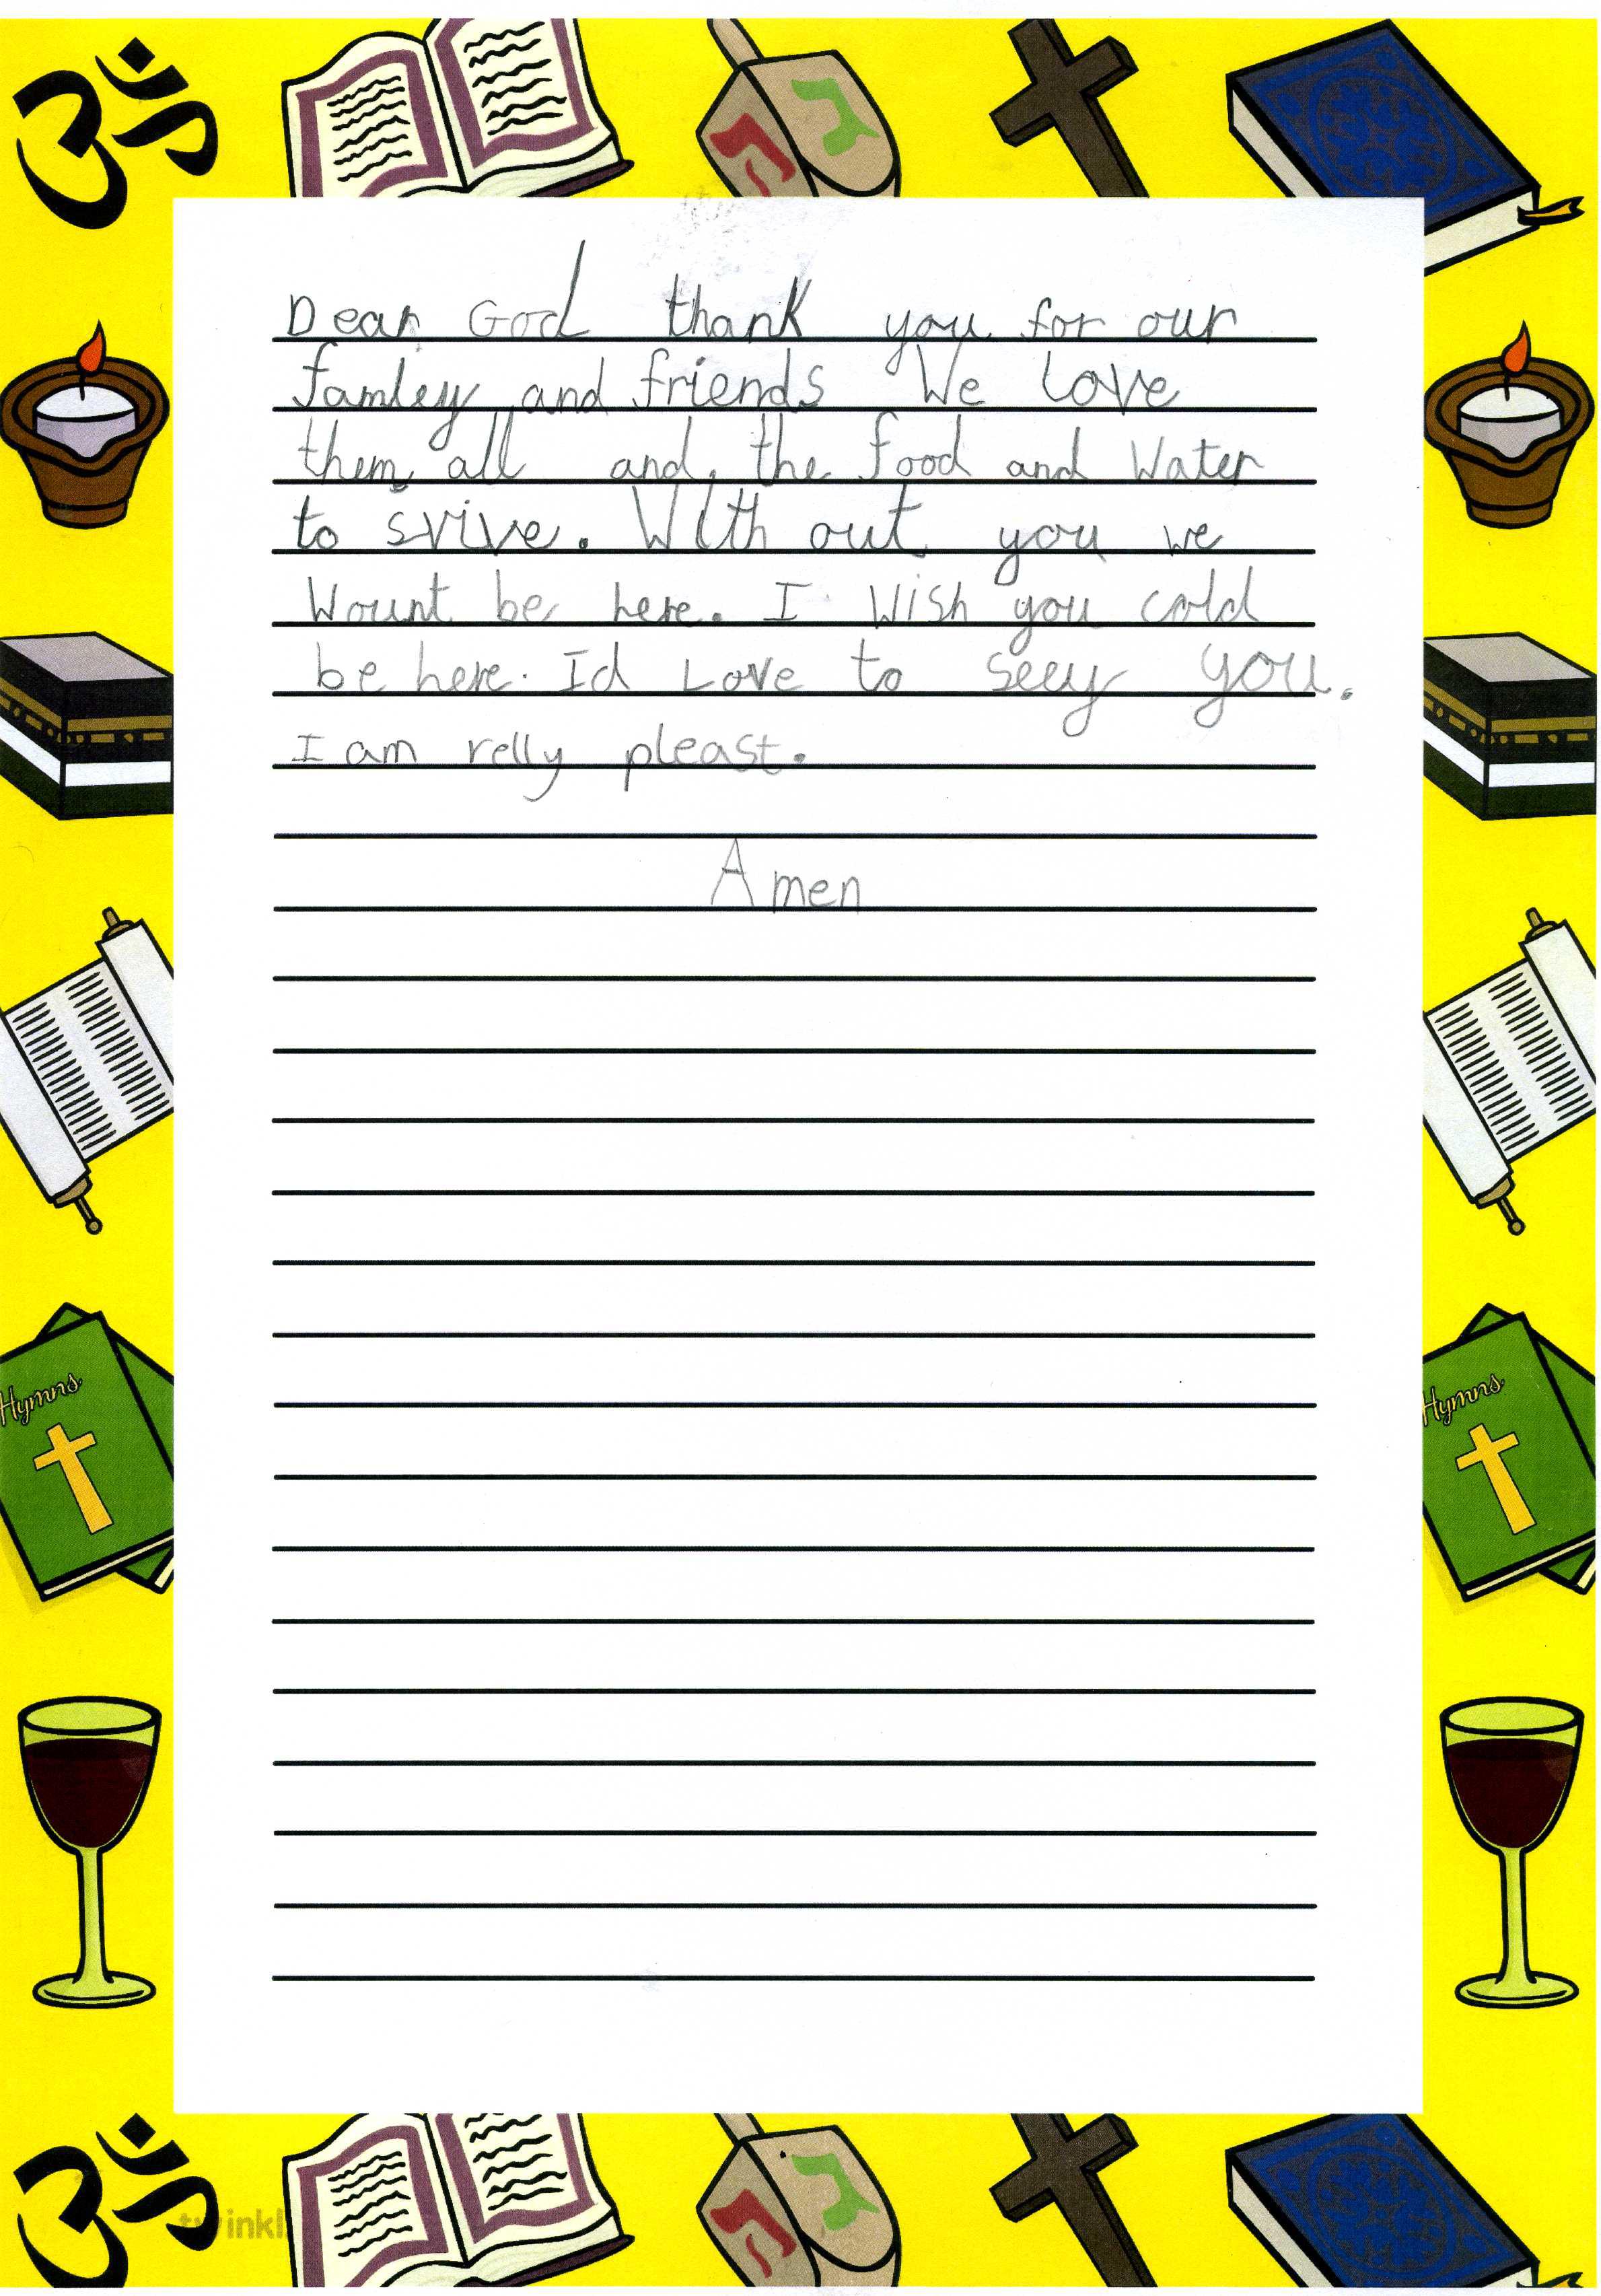 Dear God thank you for our
famley and friends We love
them all and the food and Water
to svive. With out you we
Wount be here. I Wish you cold
be here. Id Love to seey you.
I am relly pleast.
Amen
Hymns
Hymns
twinkl